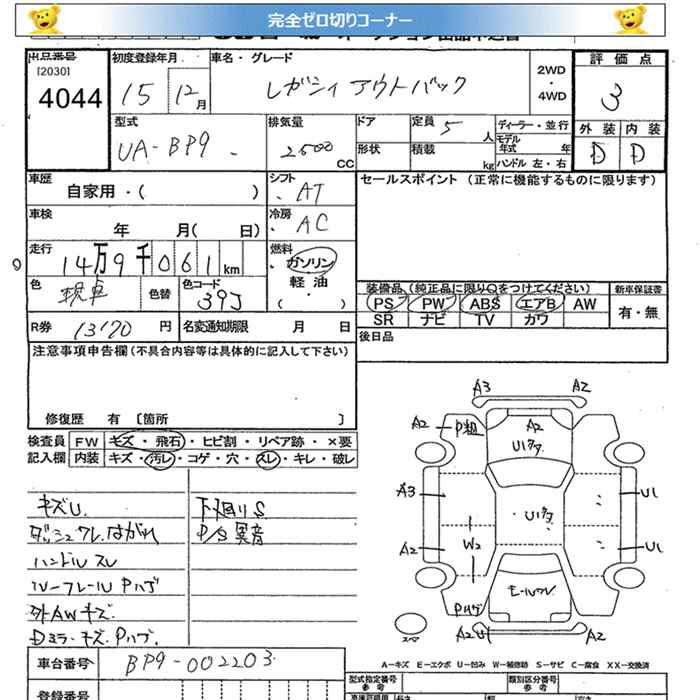 完全ゼロ切りコーナー
出品番号 初度登録年月 車名・グレード 評価点
[2030]
4044 15 12月 レガシィ アウトバック 2WD・4WD 3
型式 排気量 ドア 定員 5 人 ディーラー・並行 外装 内装
モデル年式 年
UA-BP9 2500 CC 形状 積載 kg ハンドル 左・右 D D
車歴 シフト セールスポイント(正常に機能するものに限ります)
自家用・( ) AT
車検 冷房
年 月( 日) AC
走行 燃料
14万9千061km ガソリン
軽油
・( )
色 色替 色コード 装備品(純正品に限り○をつけてください) 新車保証書
39J PS PW ABS エアB AW 有・無
SR ナビ TV カワ
R券 13170 円 名変通知期限 月 日 後日品
注意事項申告欄(不具合内容等は具体的に記入して下さい)
修復歴 有 [箇所 ]
検査員 FW キズ・飛石・ヒビ割・リペア跡・×要
記入欄 内装 キズ・汚レ・コゲ・穴・スレ・キレ・破レ
キズU. 下廻りS
ダッシュワレ、はがれ P/S異音
ハンドルスレ
ルーフレールPハゲ
外AWキズ
Dミラーキズ、Pハゲ.
A3 A2
A2 P粗 A2
Uワク
A3 U1
Uワク
A2 W2 U1
E-ルワレ
Pハゲ
スペア A2U A2
A-キズ E-エクボ U-凹み W-補修跡 S-サビ C-腐食 XX-交換済
車台番号 BP9-002203
型式指定番号 類別区分番号
参考 参考
登録番号